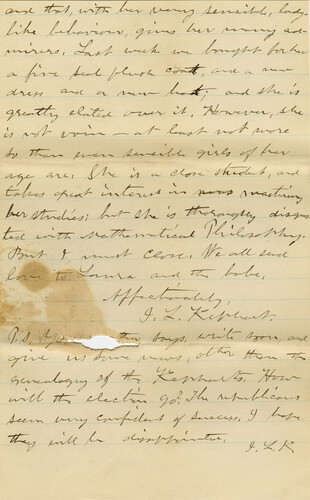 and that, with her very sensible, lady-
like behaviour, gives her many ad-
mirers. Last week we bought for her
a fine seal plush coat, and a new
dress and a new hat; and she is
greatly elated over it. However, she
is not vain — at least not more
so than even sensible girls of her
age are. She is a close student, and
takes great interest in mastering
her studies; but she is thoroughly disgus-
ted with Mathematical Philosophy.
But I must close. We all send
love to Laura and the babe,
Affectionately,
I. L. Kephart.
P.S. boys, write soon, and
give us some news, other than the
genealogy of the Kepharts. How
will the election go? The republicans
seem very confident of success. I hope
they will be disappointed.
I. L. K.